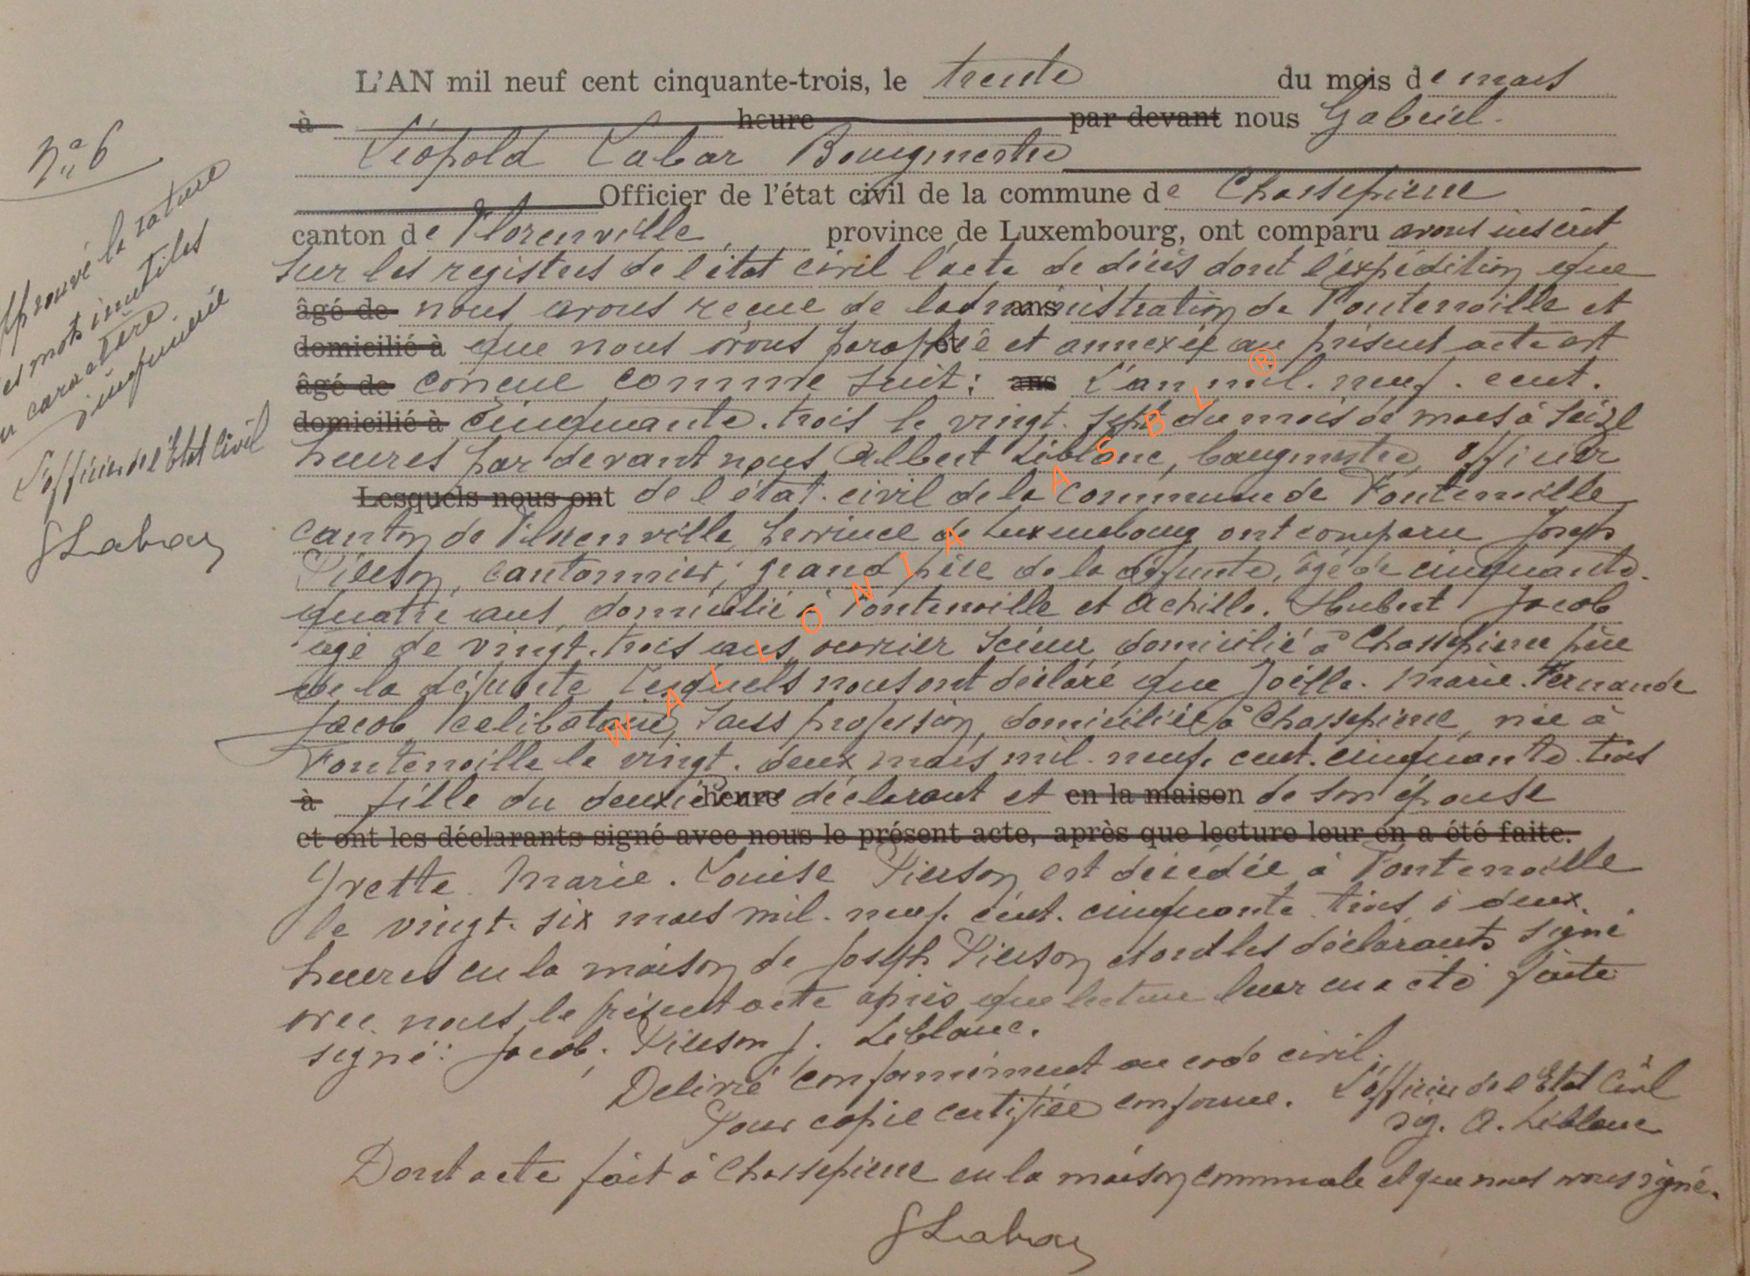 L'AN mil neuf cent cinquante-trois, le trente du mois de mars
à heure par devant nous Gabriel
Léopold Labar Bourgmestre
Officier de l'état civil de la commune de Chassepierre
canton de Florenville, province de Luxembourg, ont comparu avons inscrit
sur les registres de l'état civil l'acte de décès dont l'expédition que
âgé de nous avons reçue de l'administration de Fontenoille et ans
domicilié à que nous avons paraphée et annexée au présent acte est et
âgé de conçue comme suit : ans L'an mil. neuf. cent.
domicilié à cinquante. trois le vingt. sept du mois de mars à seize
heures par devant nous Albert Leblanc, bourgmestre, officier
Lesquels nous ont de l'état. civil de la commune de Fontenoille
canton de Florenville, province de Luxembourg ont comparu Joseph
Pierson, cantonnier, grand père de la défunte, âgé de cinquante.
quatre ans, domicilié à Fontenoille et Achille. Hubert Jacob
âgé de vingt. trois ans, ouvrier scieur domicilié à Chassepierre père
de la défunte lesquels nous ont déclaré que Joëlle. Marie. Fernande
Jacob, célibataire, sans profession, domiciliée à Chassepierre, née à
Fontenoille le vingt. deux mars mil. neuf. cent. cinquante. trois
à fille du deuxième heure déclarant et en la maison de son épouse
et ont les déclarants signé avec nous le présent acte, après que lecture leur en a été faite.
Yvette. Marie. Louise Pierson est décédée à Fontenoille
le vingt. six mars mil. neuf. cent. cinquante. trois à deux.
heures en la maison de Joseph Pierson et ont les déclarants signé
avec nous le présent acte après que lecture leur en a été faite
signé : Jacob, Pierson J. Leblanc.
Délivré conformément au code civil.
Pour copie certifiée conforme. L'officier de l'Etat Civil
sig. A. Leblanc
Dont acte fait à Chassepierre en la maison communale et que nous avons signé.
GLabar
N° 6
Approuvé la rature
des mots inutiles
en caractère
imprimé
L'officier de l'Etat Civil
GLabar
WALLONIA ASBL ®